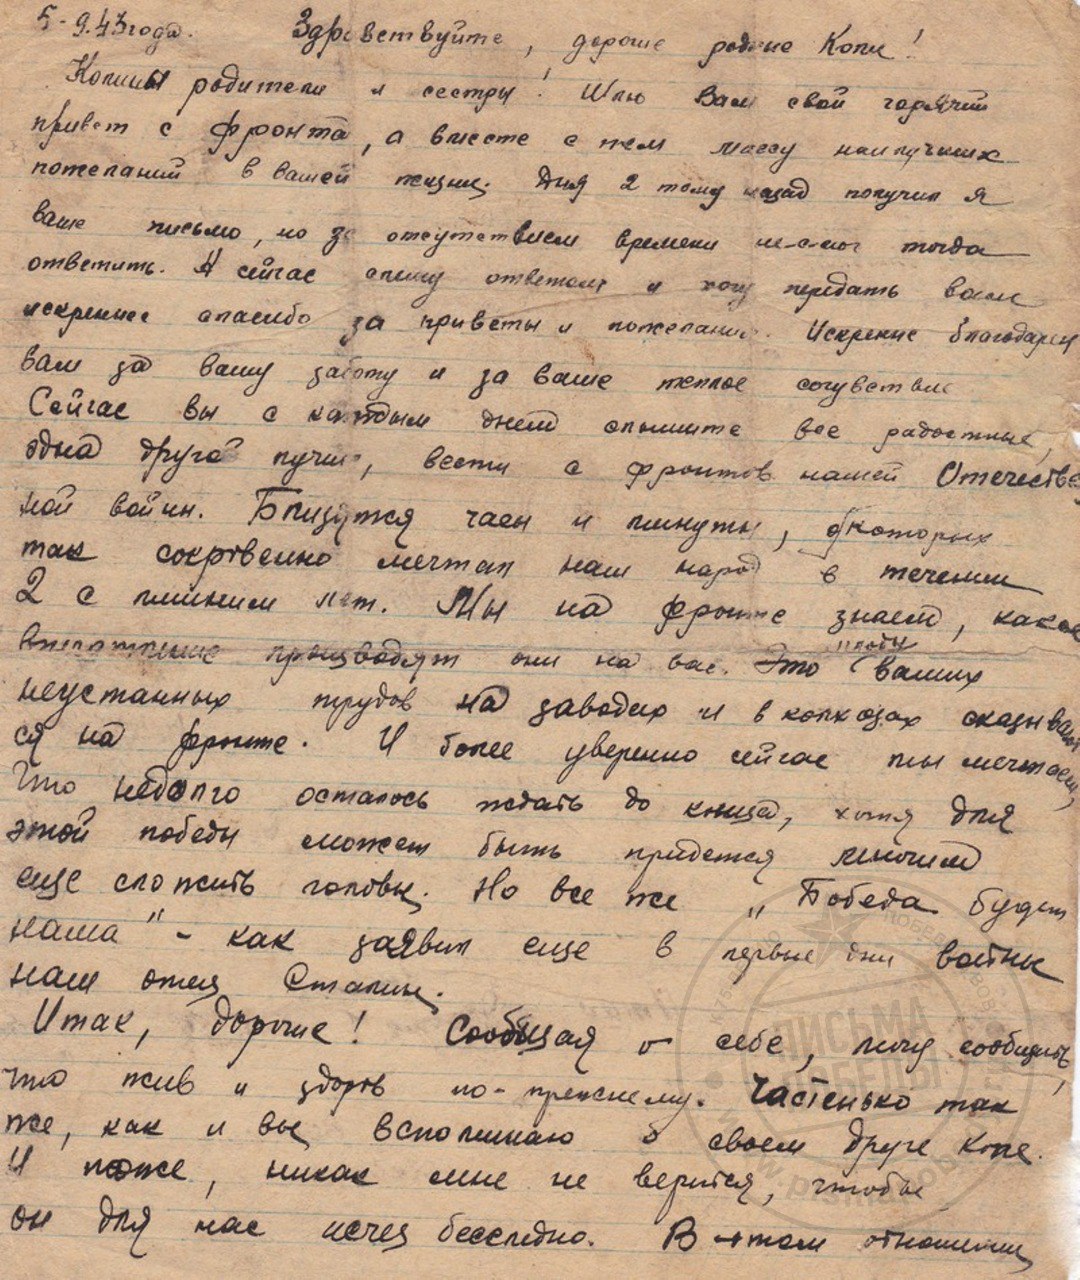 5-9.43 года. Здравствуйте, дорогие родные Коли!
Колины родители и сестры! Шлю Вам свой горячий
привет с фронта, а вместе с тем массу наилучших
пожеланий в вашей жизни. Дня 2 тому назад получил я
ваше письмо, но за отсутствием времени не смог тогда
ответить. А сейчас спешу ответом и хочу передать вам
искреннее спасибо за приветы и пожелания. Искренне благодарен
вам за вашу заботу и за ваше теплое сочувствие
Сейчас вы с каждым днем слышите все радостные,
одна другой лучше, вести с фронтов нашей Отечествен
ной войны. Близятся часы и минуты, о которых
так сокровенно мечтал наш народ в течении
2 с лишним лет. Мы на фронте знаем, какое
впечатление производят они на вас. Это плоды ваших
неустанных трудов на заводах и в колхозах сказывают
ся на фронте. И более уверенно сейчас мы мечтаем,
что недолго осталось ждать до конца, хотя для
этой победы может быть придется многим
еще сложить головы. Но все же „Победа будет
наша" - как заявил еще в первые дни войны
наш отец Сталин.
Итак, дорогие! Сообщая о себе, могу сообщить,
что жив и здоров по-прежнему. Частенько так
же, как и вы, вспоминаю о своем друге Коле.
И тоже, никак мне не верится, чтобы
он для нас исчез бесследно. В этом отношении
ПИСЬМА
ПОБЕДЫ